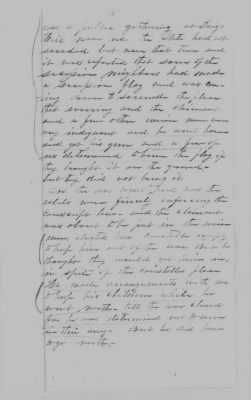 5
was a public gathering at Kings
Hill near when the State had not
seceded but near that time and
it was reported that some of the
secession neighbors had made
a secession flag and was com-
ing there to the place
that evening and the claimant
and a few other union men were
very indignant and he went home
and got his gun and a few of
us determined to burn the flag if
they brought it on the ground
but they did not bring it.
As the war went and the
rebels were firmly enforcing the
conscript law and the claimant
was about to be put in the
elected him Constable
to keep him out of the war. But he
thought they would get him in,
in spite of the constables place
He made arrangements with me
to keep his children while he
went north till the war closed
for he was determined not to serve
in their army. But he did have
to go north.